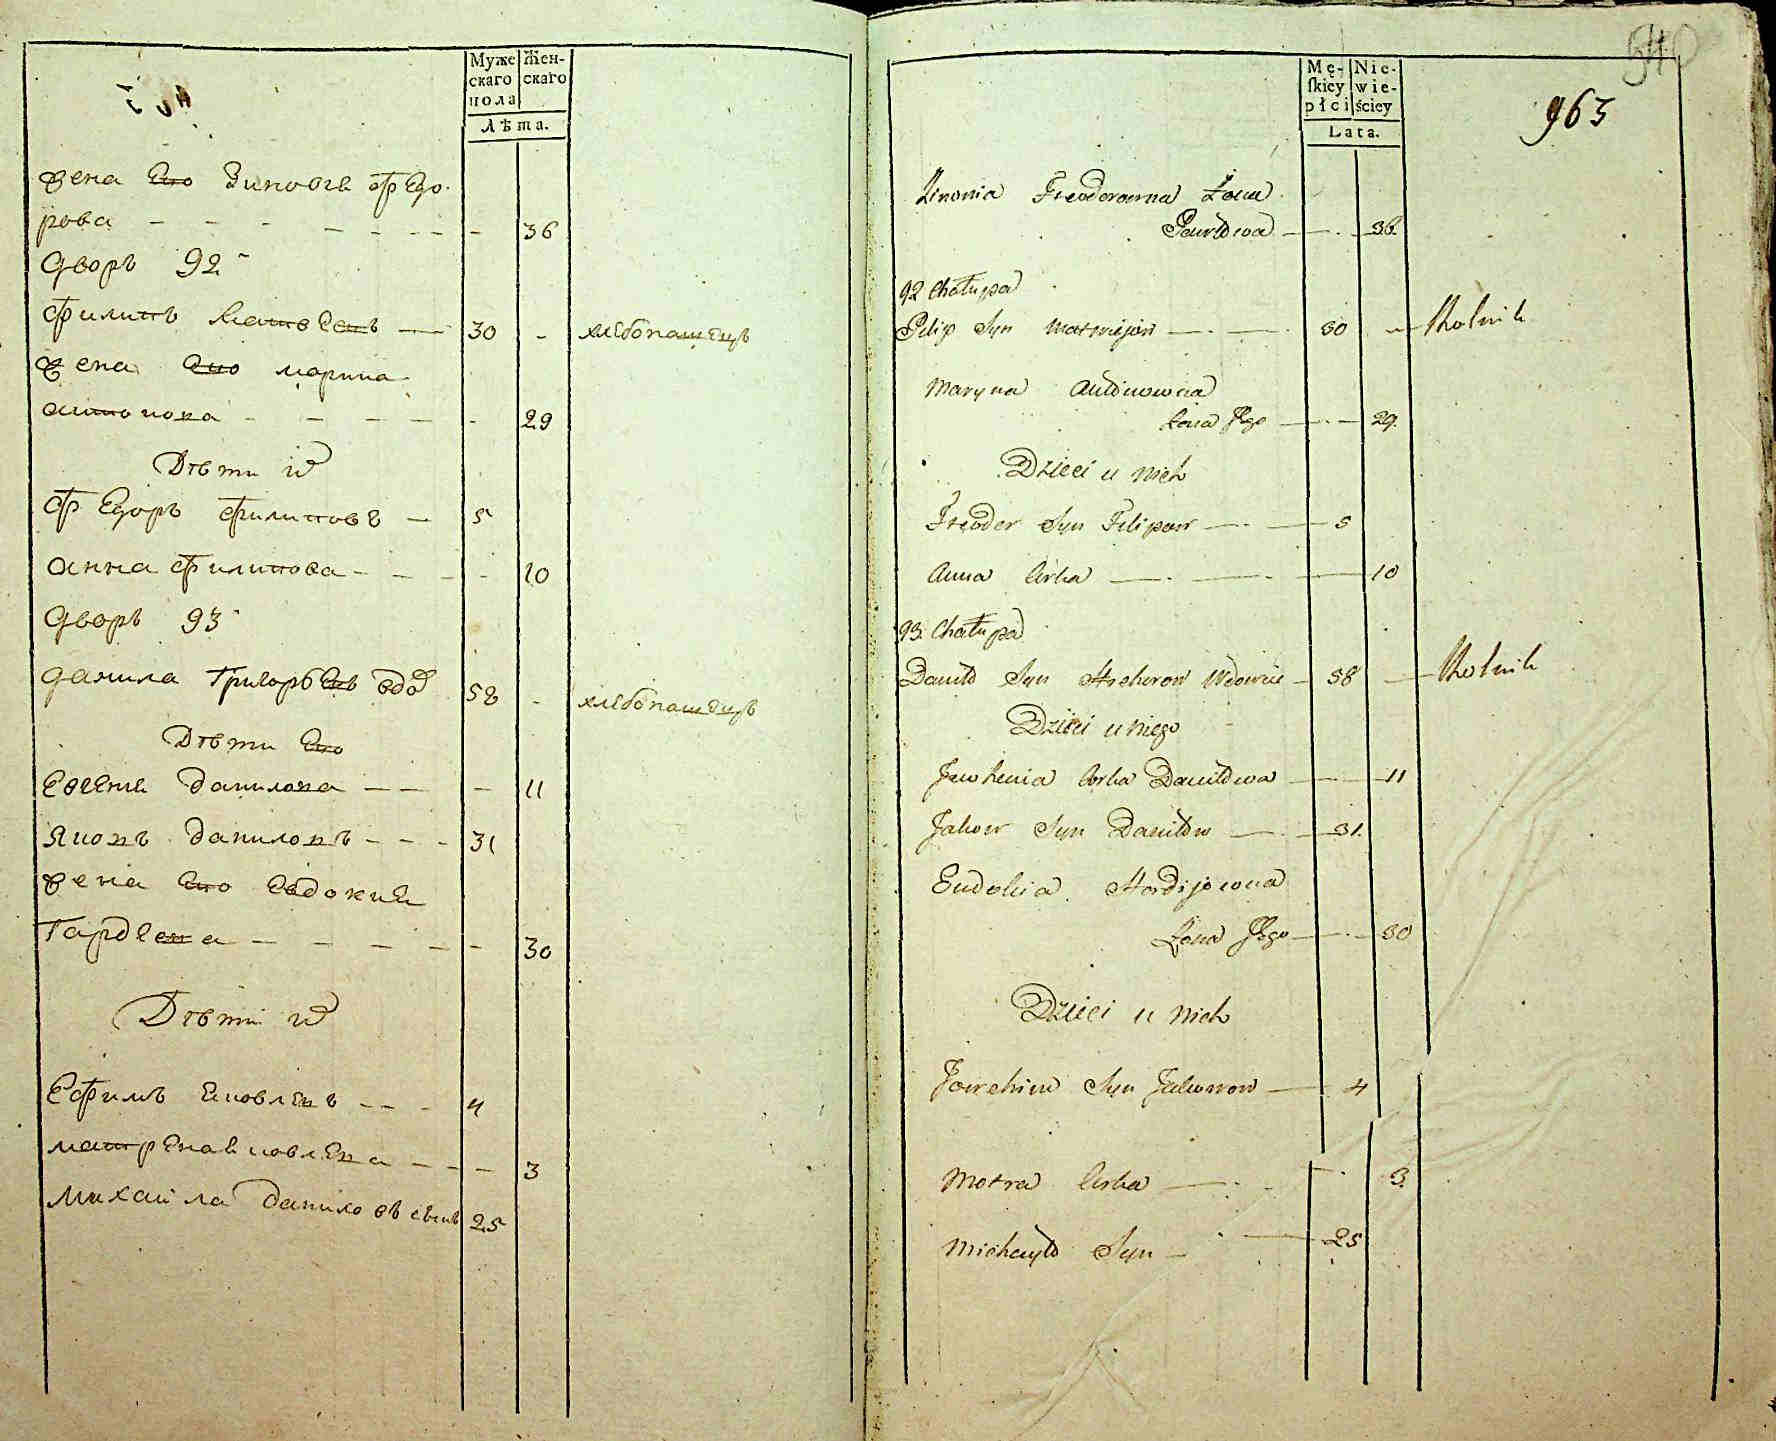 Муже
скаго
пола
Жен-
скаго
Лѣта.
жена Его Зиновiя Федо-
рова 36
Дворъ 92
Филипъ Матвеевъ 30 - хлебопашецъ
жена Его марина
антонова 29
Дѣти их
Федоръ Филиповъ 5
анна Филипова 10
Дворъ 93
данила Григорьевъ вдов 58 - хлебопашецъ
Дѣти Его
Евгения данилова 11
Яковъ даниловъ 31
жена Его Евдокия
Гардеева 30
Дѣти их
Ефимъ Яковлевъ 4
матрена Яковлева 3
Михайла даниловъ сынъ 25
540
963
Mę-
ſkiey
płci
Nie-
wie-
ściey
Lata.
Zinonia Fieodorowna Żona
Pawłowa 36
92 Chałupa
Pilip Syn Matwiejow 30 Rolnik
Maryna Antonowna
Żona Jego 29
Dzieci u Nich
Fieoder Syn Filipow 5
Anna Corka 10
93 Chałupa
Daniło Syn Hrehorow Wdowiec 58 Rolnik
Dzieci u Niego
Jewhenia Corka Daniłowa 11
Jakow Syn Daniłow 31
Eudokia Hordijowna
Żona Jego 30
Dzieci u Nich
Joachim Syn Jakowow 4
Motra Corka 3
Michayło Syn 25